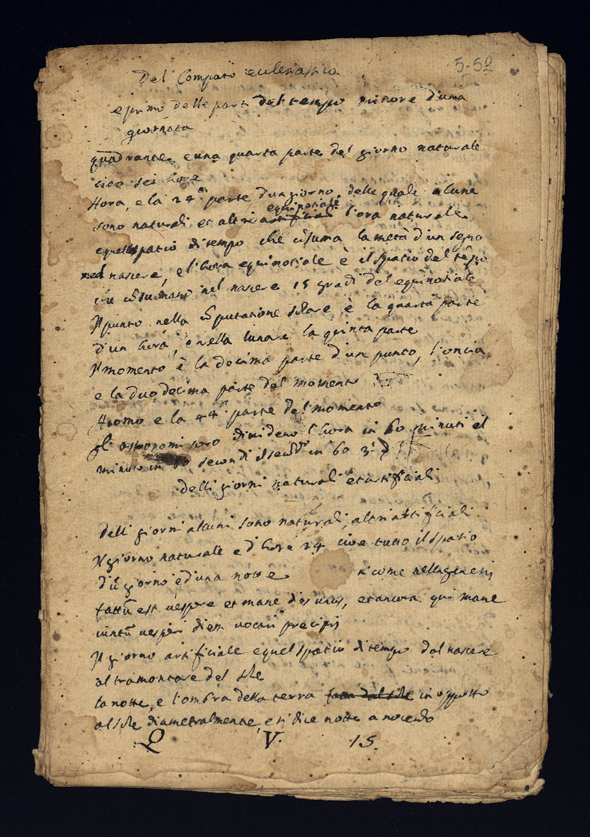 5-52
Del Computo eclesiastico
e primo delle parti del tempo minore d'una
giornata
quadrante e una quarta parte del giorno naturale
cioe sei hore
Hora, e la 24 parte d'un giorno delle quali alcune
equinotiali
sono naturali et altre artificiali l'ora naturale
quello spatio di tempo che si suma la metà d'un segno
nel nascere, e l'hora equinotiale è il spatio del tempo
che nel nascere 15 gradi del equinotiale
Il punto nella computatione solare è la quarta parte
d'un hora, e nella lunare la quinta parte
Il momento è la decima parte d'un punto, l'oncia
e la duodecima parte del momento
Atomo e la 44 parte del momento
gli astronomi poi dividono l'hora in 60 minuti el
minuto in 60 secondi il secdo in 60 3i
Delli giorni naturali et artificiali
Delli giorni alcuni sono naturali, altri artificiali
Il giorno naturale e d'hore 24 cioe tutto il spatio
d'un giorno e d'una notte si come nella genesi
fattu est vespere et mane dies unus, et ancora qui mane
vespere diem vocari precipis
Il giorno artificiale e quel spatio di tempo dal nascere
al tramontare del sole
la notte, e l'ombra della terra fatta dal sole in opposto
al sole diametralmente, e si dice notte a nocendo
Q V 15